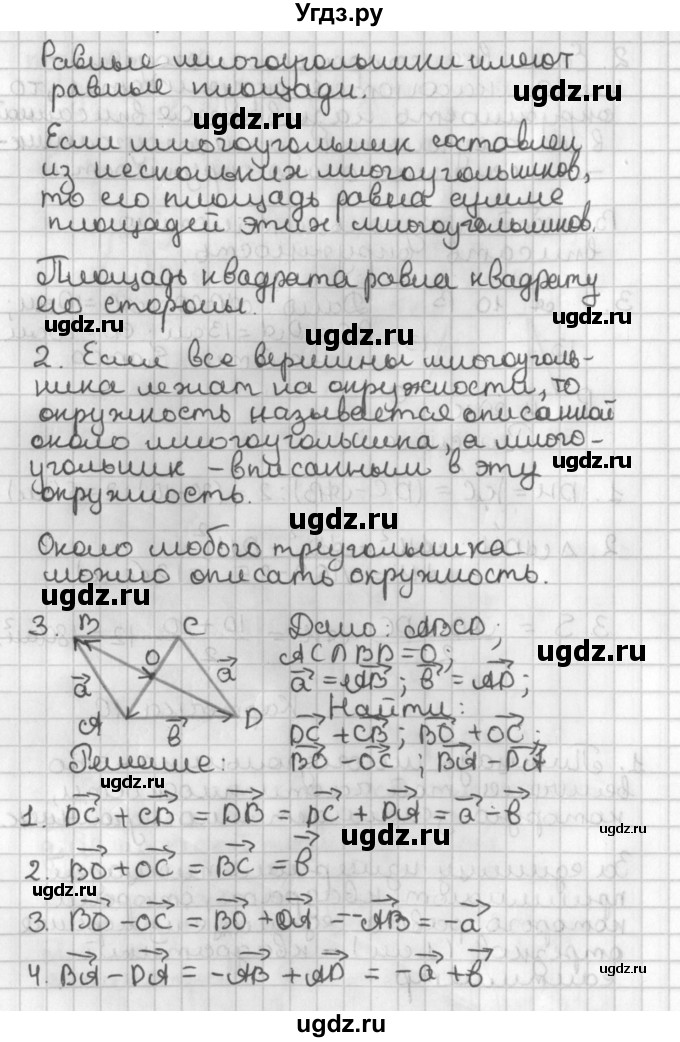 Угдз.ру
Равные многоугольники имеют
равные площади.
ugdz.ru
ugdz.ru
Если многоугольник составлен
из нескольких многоугольников,
ugdz.ru
то его площадь равна сумме
площадей этих многоугольников.
Площадь квадрата равна квадрату
его стороны.
ugdz.ru
ugdz.ru
ugdz.ru
2. Если все вершины многоуголь-
ника лежат на окружности, то
окружность называется описанной
около многоугольника, а много-
угольник - вписанным в эту
ugdz.ru
окружность.
ugdz.ru
Около любого треугольника
можно описать окружность.
ugdz.ru
3. B C Дано: ABCD;
O AC∩BD=O;
ugdz.ru
a⃗ a⃗ a⃗ = AB⃗; b⃗ = AD⃗;
A b⃗ D Найти:
DC⃗ + CB⃗; BO⃗ + OC⃗;
Решение: BO⃗ - OC⃗; BA⃗ - DA⃗
ugdz.ru
1. DC⃗ + CB⃗ = DB⃗ = DC⃗ + DA⃗ = a⃗ - b⃗
ugdz.ru
ugdz.ru
2. BO⃗ + OC⃗ = BC⃗ = b⃗
ugdz.ru
3. BO⃗ - OC⃗ = BO⃗ + OA⃗ = -AB⃗ = -a⃗
4. BA⃗ - DA⃗ = -AB⃗ + AD⃗ = -a⃗ + b⃗
ugdz.ru
ugdz.ru
ugdz.ru